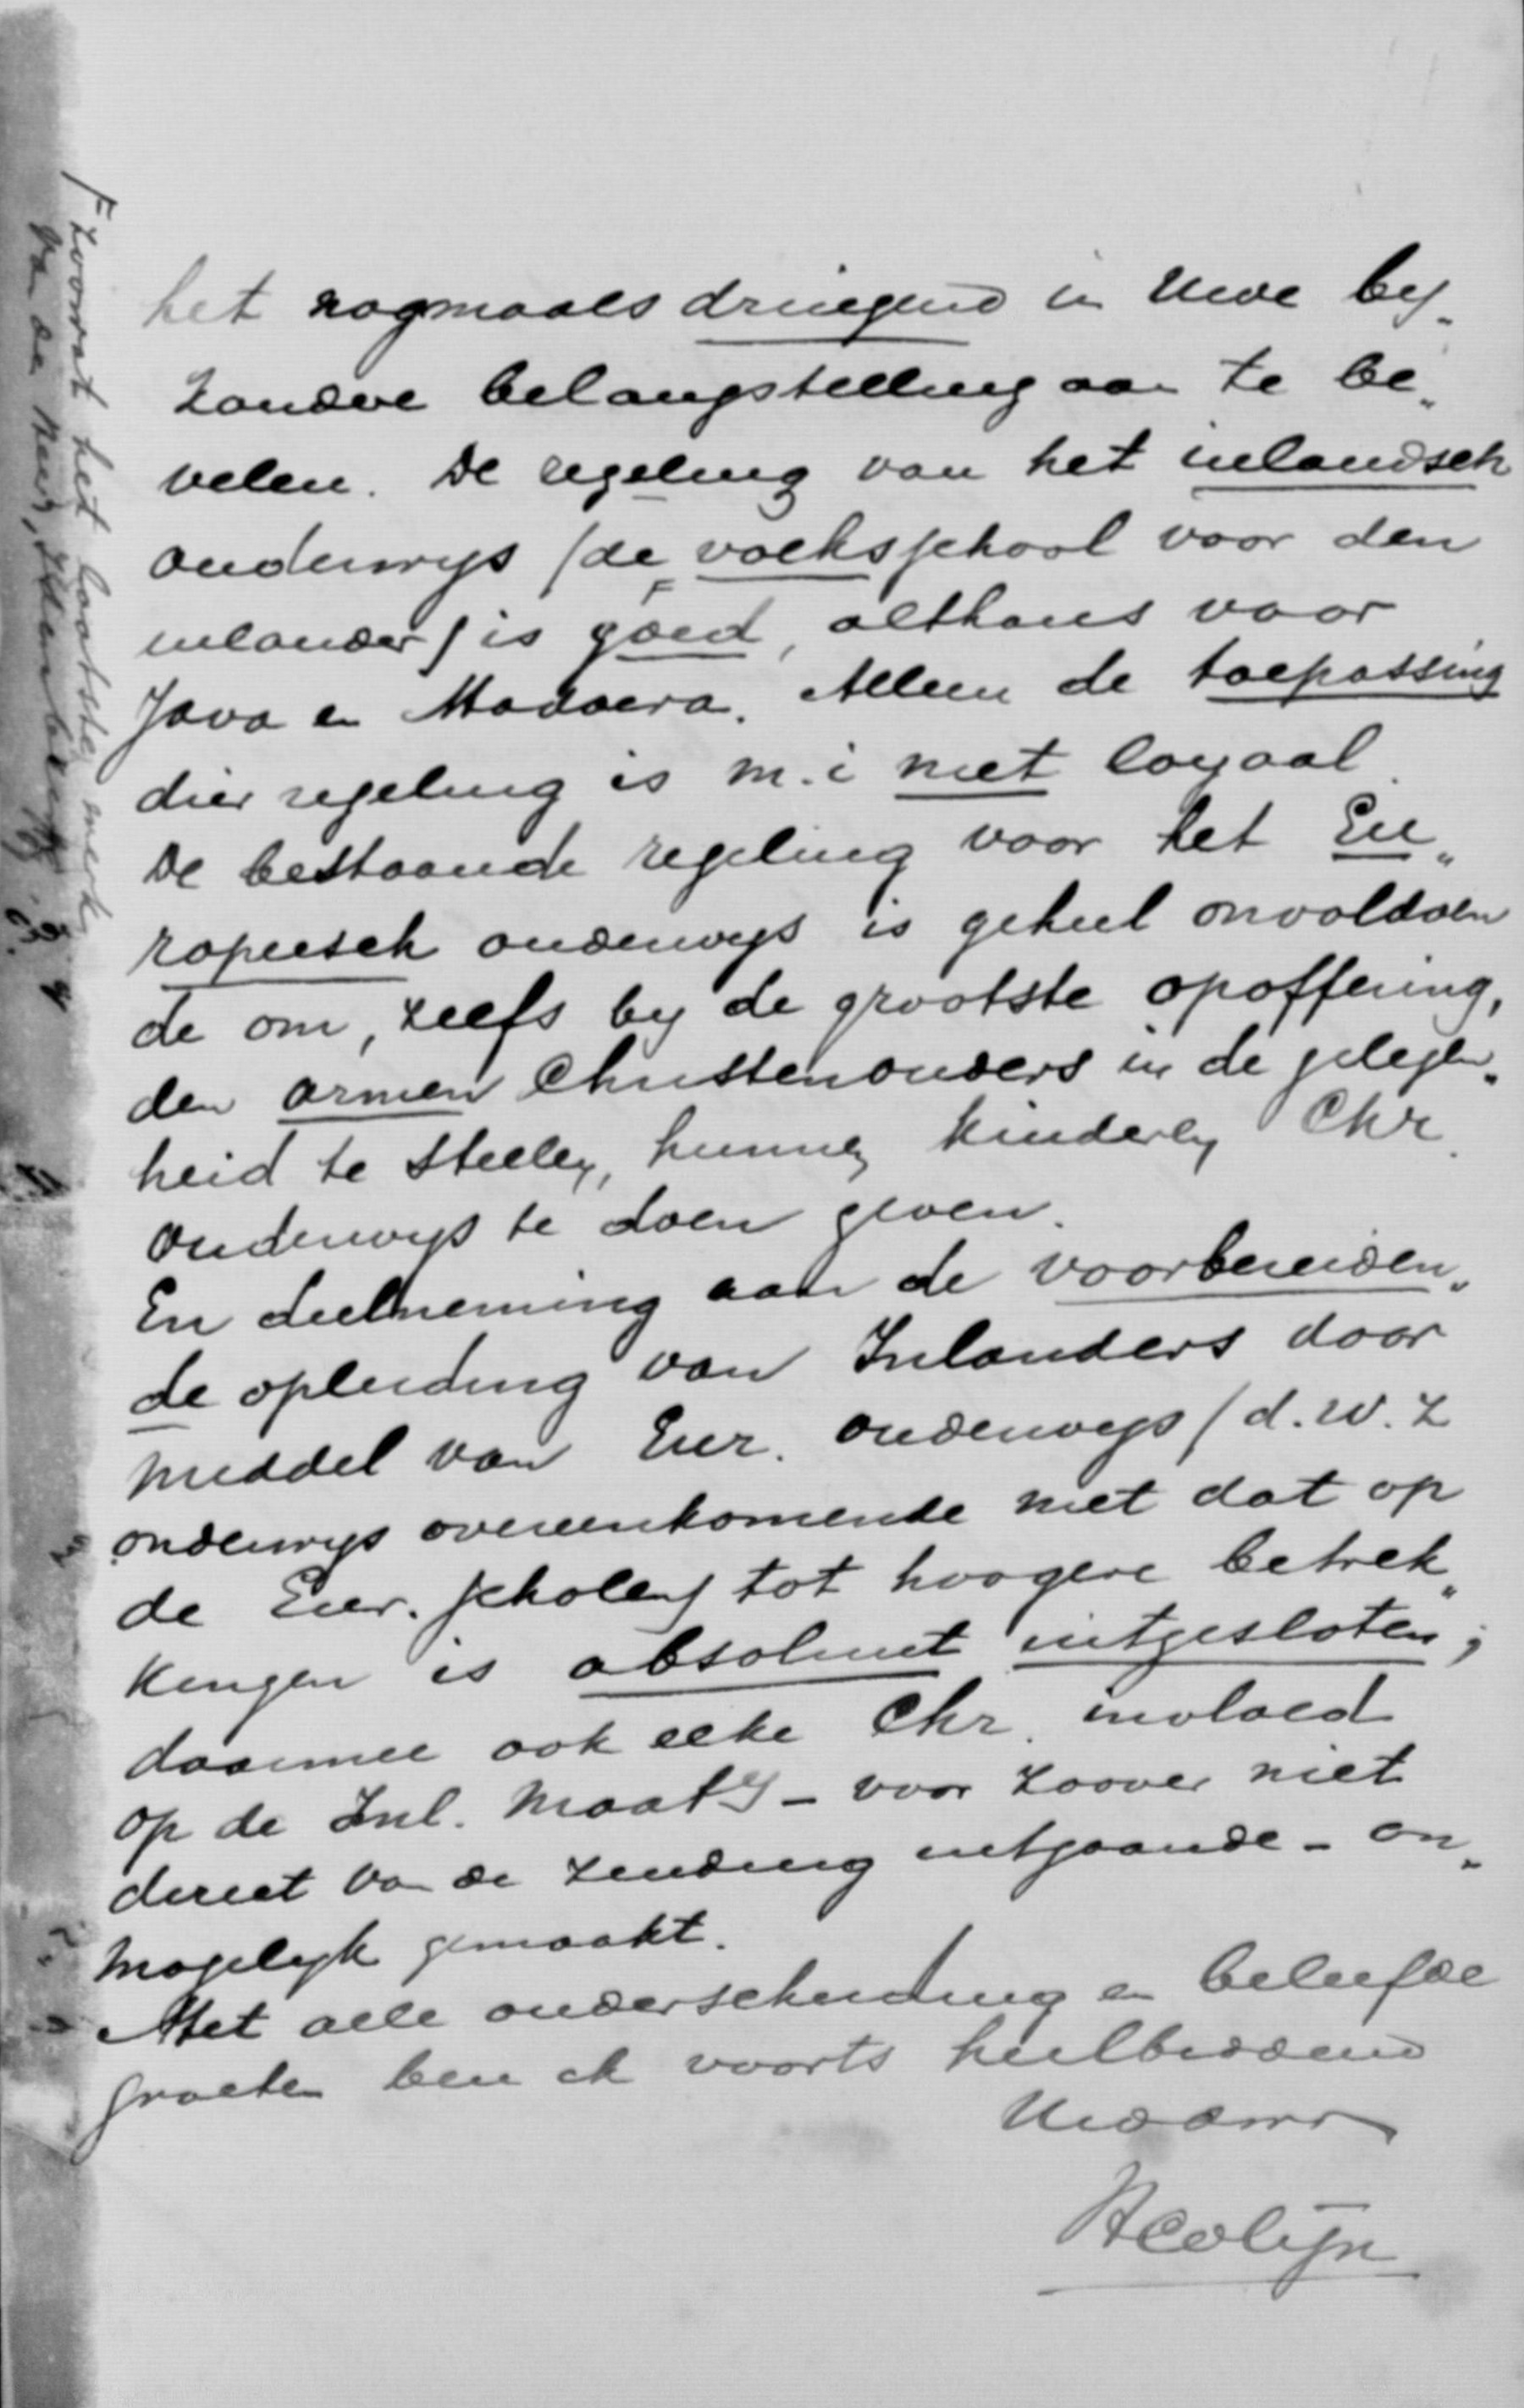 het nogmaals dringend in Uwe by„
zondere belangstelling aan te be„
velen. De regeling van het inlandsch
onderwys (de volksschool voor den
inlander) is F goed, althans voor
Java en Madoera. Alleen de toepassing
dier regeling is m.i niet loyaal.
De bestaande regeling voor het Eu„
ropeesch onderwys is geheel onvoldoen
de om, zelfs by de grootste opoffering,
den armen Christenouders in de gelegen„
heid te stellen, hunnen kinderen Chr.
onderwys te doen geven.
En deelneming aan de voorbereiden„
de opleiding van Inlanders door
middel van Eur. onderwys (d.w.z
onderwys overeenkomende met dat op
de Eur. scholen) tot hoogere betrek„
kingen is absoluut uitgesloten;
daarmee ook elke Chr. invloed
op de Inl. Maatsij – voor zoover niet
direct van de zending uitgaande – on„
mogelyk gemaakt.
Met alle onderscheiding en beleefde
groeten ben ik voorts heilbiddend
Uwdwr
HColijn
F zoowat het laatste, merk
van de heer